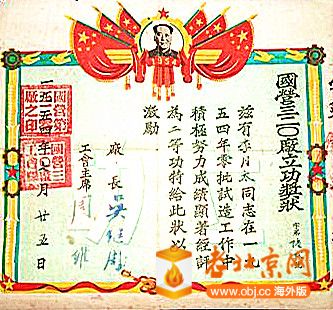 國營三二〇廠立功獎狀
茲有李月太同志在一九
五四年零批試造工作中
積極努力成績顯著經評
為二等功特給此狀以
激勵
廠長 吳繼周
工會主席 周一維
月廿五日
老北京网
www.obj.cc 海外版